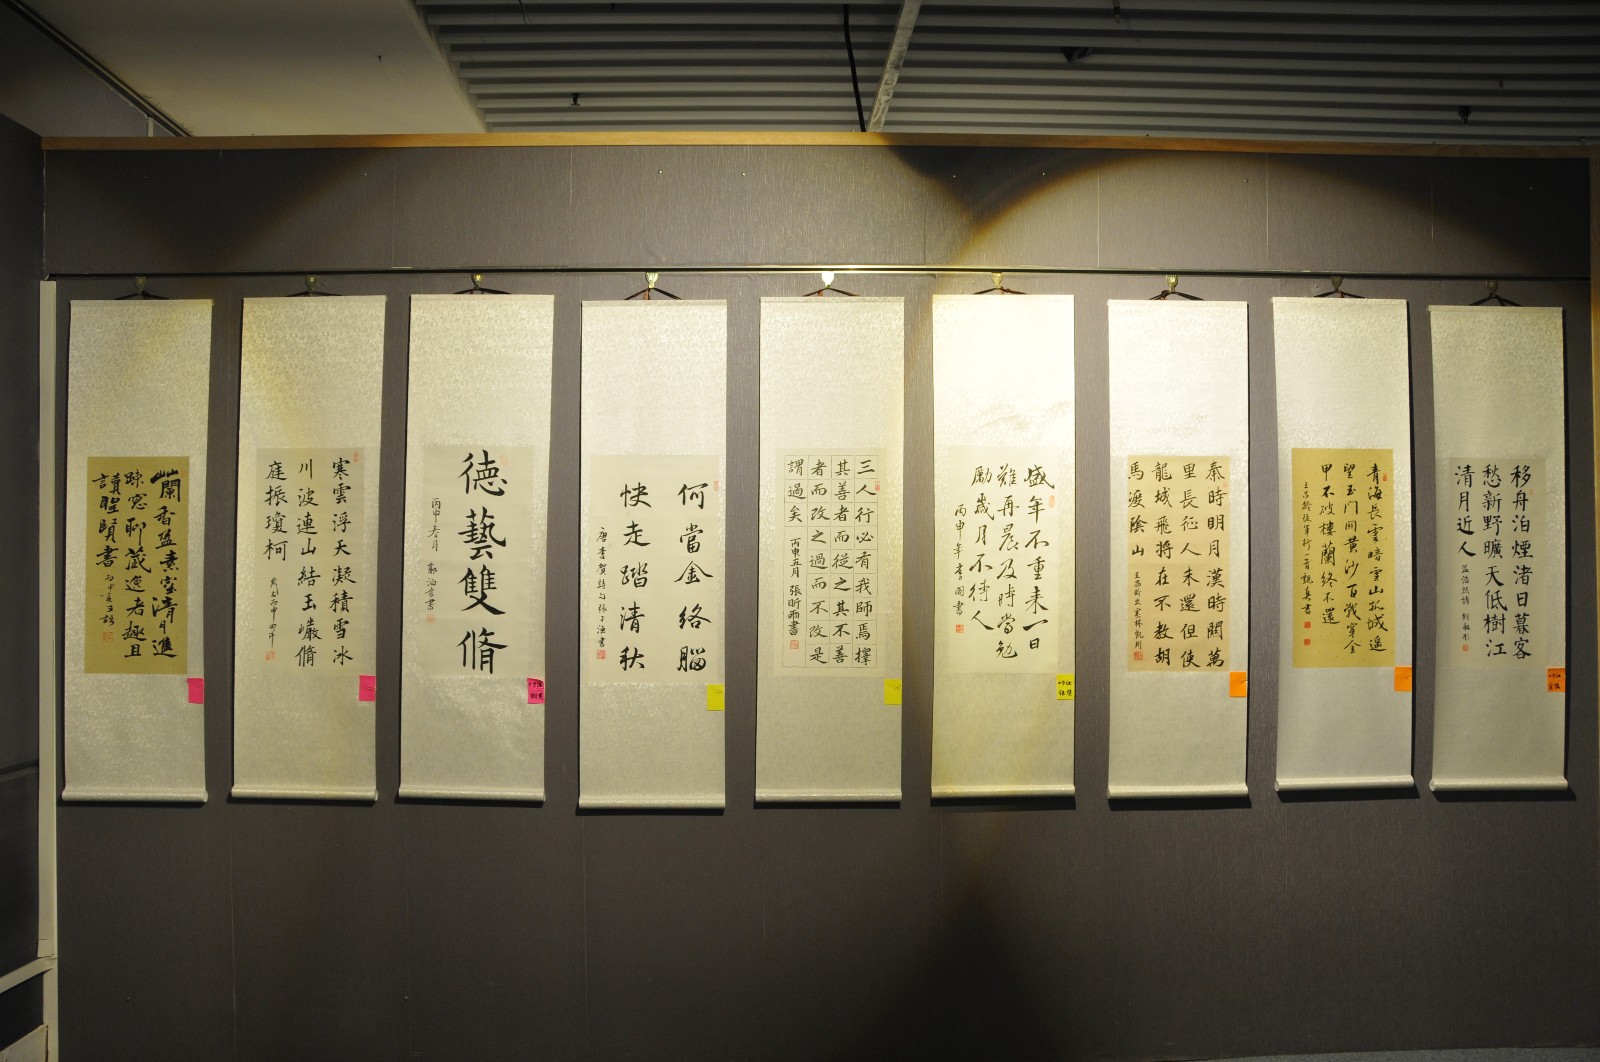 移舟泊煙渚日暮客
愁新野曠天低樹江
清月近人
孟浩然詩
青海長雲暗雪山孤城遥
望玉門關黄沙百戰穿金
甲不破樓蘭終不還
王昌齡從軍行一首
秦時明月漢時關萬
里長征人未還但使
龍城飛将在不教胡
馬渡陰山
王昌齡出塞
盛年不重来一日
難再晨及時當勉
勵歲月不待人
丙申年李國書
三人行必有我師焉擇
其善者而從之其不善
者而改之過而不改是
謂過矣
丙申五月張昕雨書
何當金絡腦
快走踏清秋
唐李賀詩句張子涵書
德藝雙脩
丙申春月
寒雲浮天凝積雪冰
川波連山結玉巖脩
庭振瓊柯
蘭香盈素室清月進
疎窓聊蔵逸者趣且
讀聖賢書